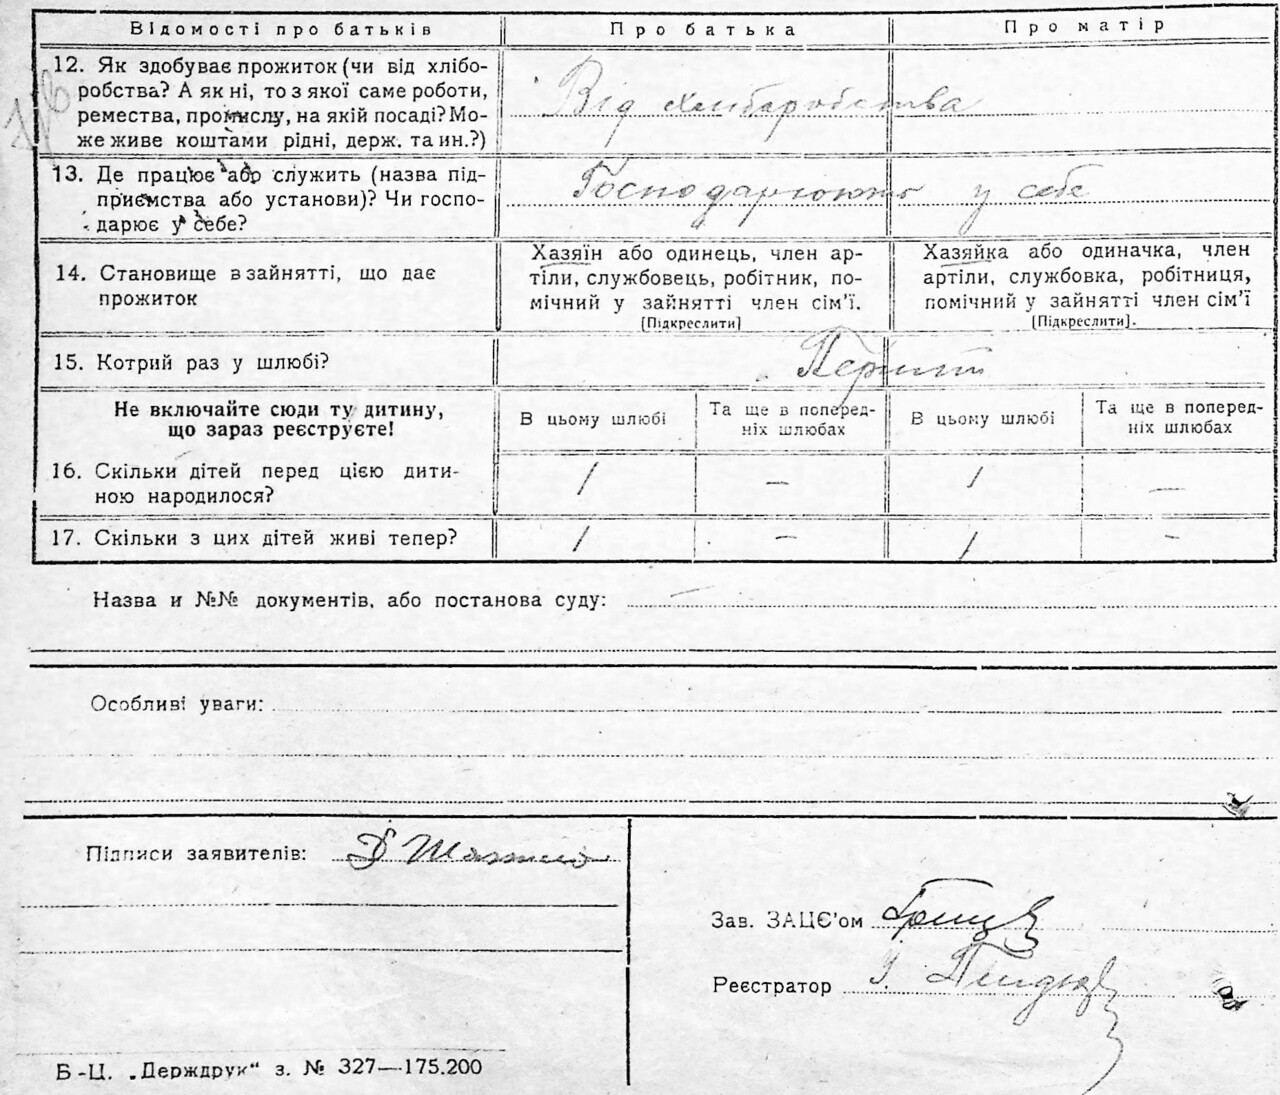 Відомості про батьків Про батька Про матір
12. Як здобуває прожиток (чи від хлібо-
робства? А як ні, то з якої саме роботи,
ремества, промислу, на якій посаді? Мо-
же живе коштами рідні, держ. та ин.?)
Від хліборобства
13. Де працює або служить (назва під-
приємства або установи)? Чи госпо-
дарює у себе?
Господарюють у себе
14. Становище в зайнятті, що дає
прожиток
Хазяїн або одинець, член ар-
тіли, службовець, робітник, по-
мічний у зайнятті член сім'ї.
[Підкреслити]
Хазяйка або одиначка, член
артіли, службовка, робітниця,
помічний у зайнятті член сім'ї
[Підкреслити].
15. Котрий раз у шлюбі?
Перший
Не включайте сюди ту дитину,
що зараз реєструєте!
В цьому шлюбі
Та ще в поперед-
ніх шлюбах
В цьому шлюбі
Та ще в поперед-
ніх шлюбах
16. Скільки дітей перед цією дити-
ною народилося?
1 — 1 —
17. Скільки з цих дітей живі тепер? 1 — 1 —
Назва и №№ документів, або постанова суду: —
Особливі уваги:
Підписи заявителів:
Зав. ЗАЦЄ'ом
Реєстратор
Б-Ц. „Держдрук“ з. № 327—175.200